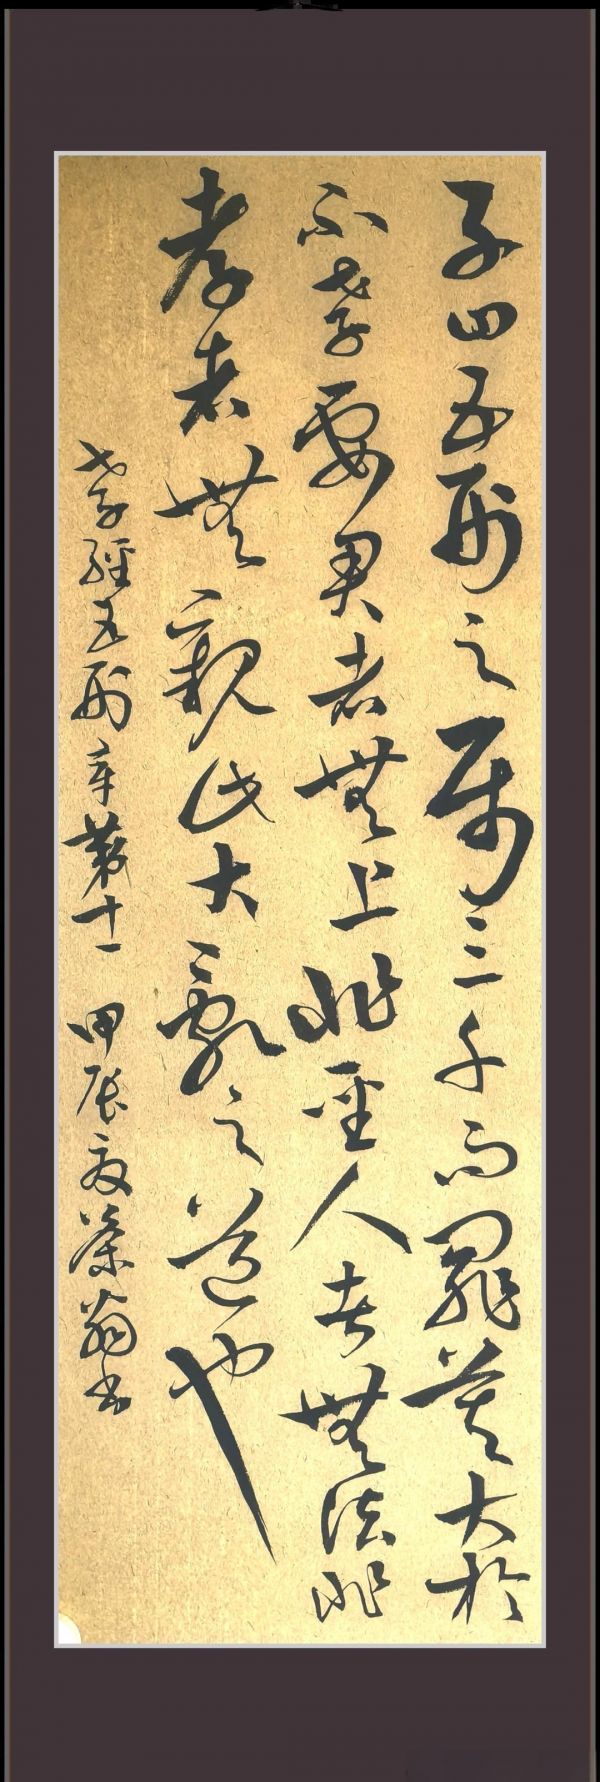 子曰五刑之属三千而罪莫大於
不孝要君者無上非聖人者無法非
孝者無親此大亂之道也
孝經五刑章第十一 甲辰夏榮翁书